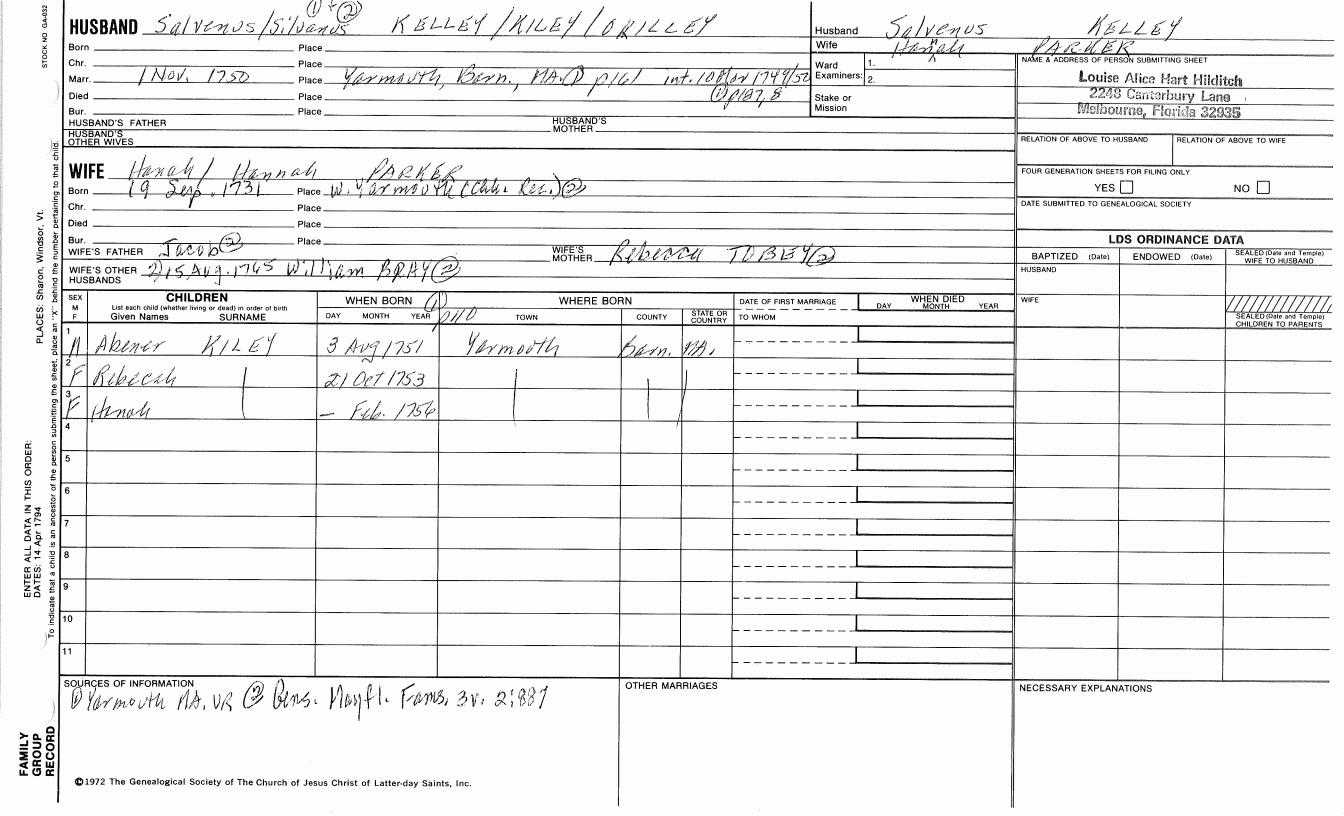 STOCK NO GA-032
① + ②
HUSBAND Salvenus/Silvanus KELLEY/KILEY/OKILLEY
Born Place
Chr. Place
Marr. 1 Nov. 1750 Place Yarmouth, Barn, MA. ① p161 int. 10 Mar 1749/50
Died Place ① p187, 8
Bur. Place
HUSBAND'S FATHER HUSBAND'S MOTHER
HUSBAND'S OTHER WIVES
WIFE Hanah / Hannah PARKER
Born 19 Sep. 1731 Place W. Yarmouth (Chh. Rec.) ②
Chr. Place
Died Place
Bur. Place
WIFE'S FATHER Jacob ② WIFE'S MOTHER Rebecca TOBEY ②
WIFE'S OTHER HUSBANDS 2) 15 Aug. 1765 William BRAY ②
Husband Salvenus KELLEY
Wife Hannah PARKER
Ward Examiners: 1. 2.
Stake or Mission
NAME & ADDRESS OF PERSON SUBMITTING SHEET
Louise Alice Hart Hilditch
2248 Canterbury Lane
Melbourne, Florida 32935
RELATION OF ABOVE TO HUSBAND RELATION OF ABOVE TO WIFE
FOUR GENERATION SHEETS FOR FILING ONLY
YES NO
DATE SUBMITTED TO GENEALOGICAL SOCIETY
LDS ORDINANCE DATA
BAPTIZED (Date) ENDOWED (Date) SEALED (Date and Temple) WIFE TO HUSBAND
HUSBAND
WIFE
SEALED (Date and Temple) CHILDREN TO PARENTS
SEX M F
CHILDREN
List each child (whether living or dead) in order of birth
Given Names SURNAME
WHEN BORN ①
DAY MONTH YEAR p110
WHERE BORN
TOWN COUNTY STATE OR COUNTRY
DATE OF FIRST MARRIAGE
TO WHOM
WHEN DIED
DAY MONTH YEAR
1 M Abener KILEY 3 Aug 1751 Yarmouth Barn. MA.
2 F Rebecah 21 Oct 1753
3 F Hanah — Feb. 1756
4
5
6
7
8
9
10
11
SOURCES OF INFORMATION
① Yarmouth MA. VR ② Gens. Mayfl. Fams. 3v. 2:887
OTHER MARRIAGES
NECESSARY EXPLANATIONS
©1972 The Genealogical Society of The Church of Jesus Christ of Latter-day Saints, Inc.
FAMILY GROUP RECORD
ENTER ALL DATA IN THIS ORDER:
DATES: 14 Apr 1794
PLACES: Sharon, Windsor, Vt.
To indicate that a child is an ancestor of the person submitting the sheet, place an "X" behind the number pertaining to that child.